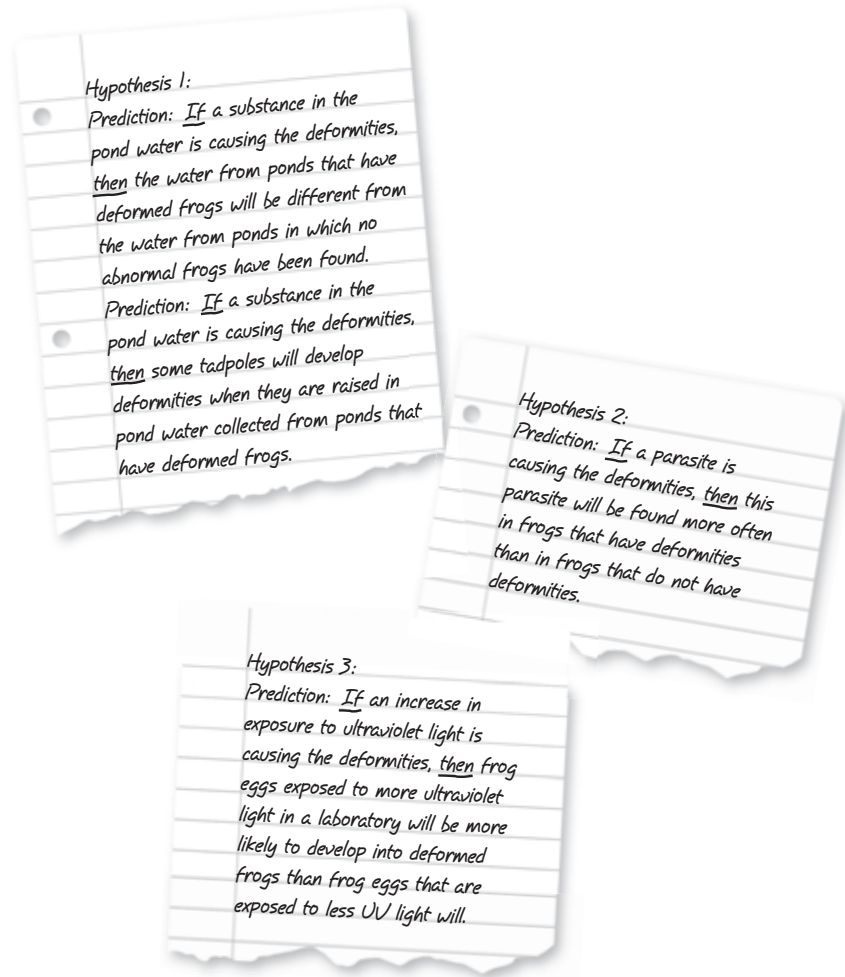 Hypothesis 1:
Prediction: If a substance in the
pond water is causing the deformities,
then the water from ponds that have
deformed frogs will be different from
the water from ponds in which no
abnormal frogs have been found.
Prediction: If a substance in the
pond water is causing the deformities,
then some tadpoles will develop
deformities when they are raised in
pond water collected from ponds that
have deformed frogs.
Hypothesis 2:
Prediction: If a parasite is
causing the deformities, then this
parasite will be found more often
in frogs that have deformities
than in frogs that do not have
deformities.
Hypothesis 3:
Prediction: If an increase in
exposure to ultraviolet light is
causing the deformities, then frog
eggs exposed to more ultraviolet
light in a laboratory will be more
likely to develop into deformed
frogs than frog eggs that are
exposed to less UV light will.